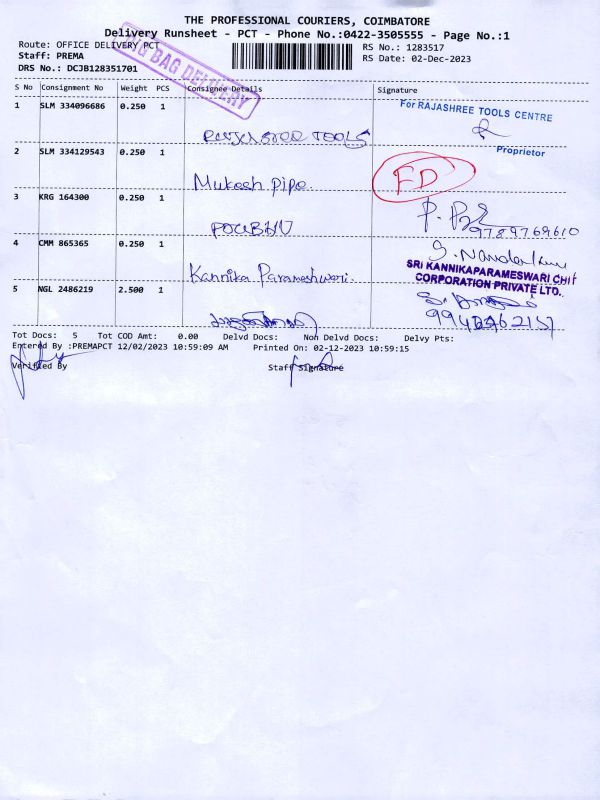 THE PROFESSIONAL COURIERS, COIMBATORE
Delivery Runsheet - PCT - Phone No.:0422-3505555 - Page No.:1
Route: OFFICE DELIVERY PCT
RS No.: 1283517
Staff: PREMA
RS Date: 02-Dec-2023
DRS No.: DCJB128351701
BAG DELIVERY
S No Consignment No Weight PCS Consignee Details Signature
1 SLM 334096686 0.250 1
For RAJASHREE TOOLS CENTRE
Proprietor
TOOLS
2 SLM 334129543 0.250 1
Mukesh Pipe.
FD
3 KRG 164300 0.250 1
9789769610
4 CMM 865365 0.250 1
Kannika Parameshwari.
SRI KANNIKAPARAMESWARI CHIT
CORPORATION PRIVATE LTD.
5 NGL 2486219 2.500 1
Tot Docs: 5 Tot COD Amt: 0.00 Delvd Docs: Non Delvd Docs: Delvy Pts:
Entered By :PREMAPCT 12/02/2023 10:59:09 AM Printed On: 02-12-2023 10:59:15
Verified By Staff Signature